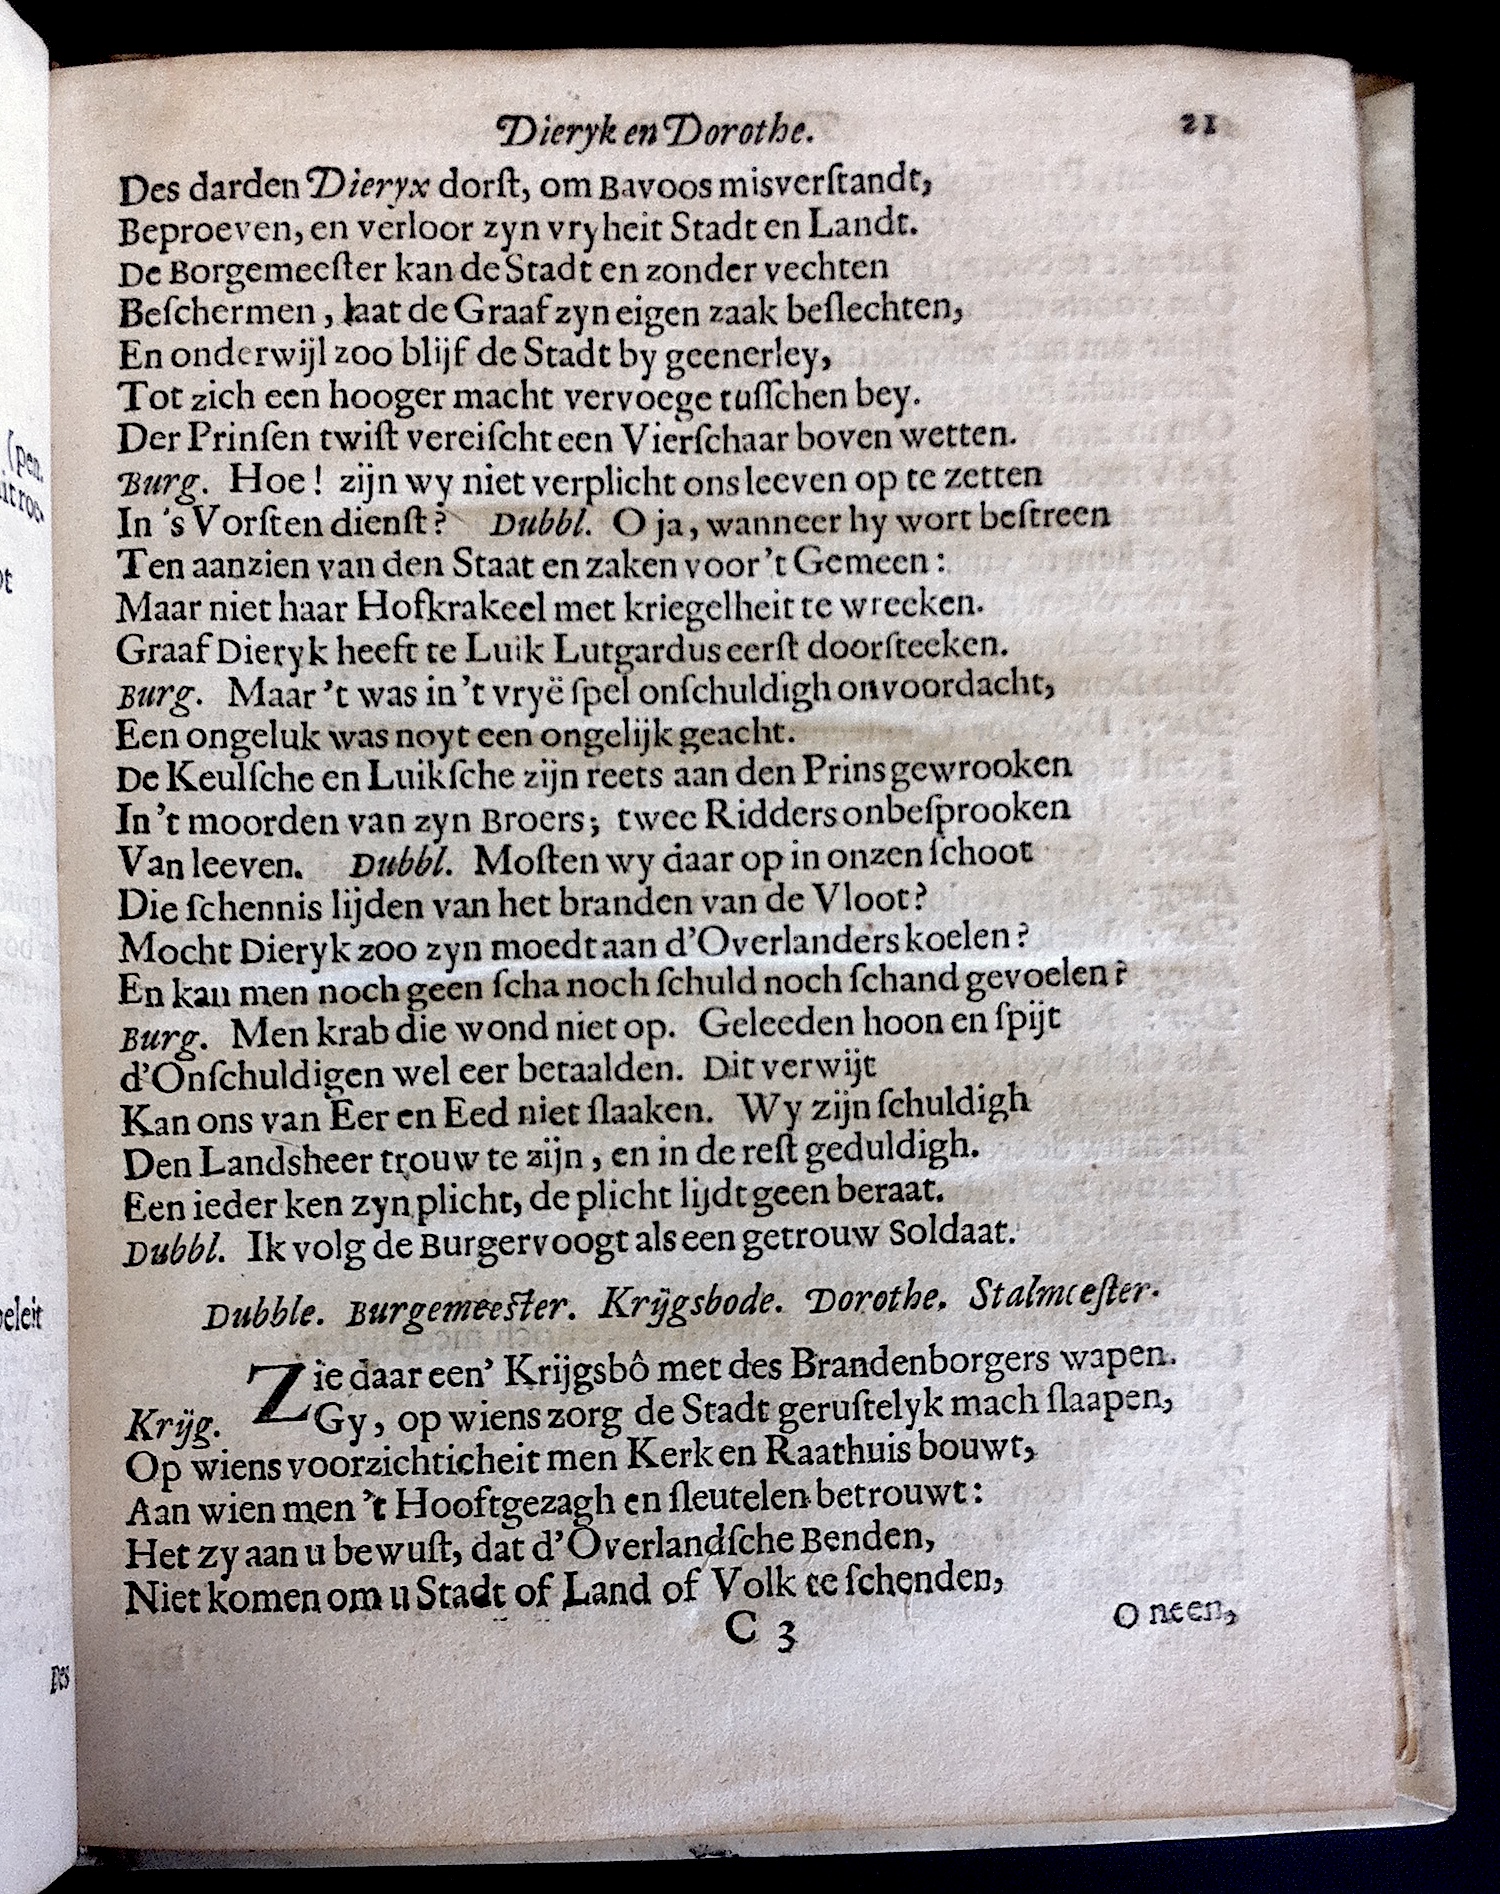 Dieryk en Dorothe. 21
Des darden Dieryx dorſt, om Bavoos misverſtandt,
Beproeven, en verloor zyn vryheit Stadt en Landt.
De Borgemeeſter kan de Stadt en zonder vechten
Beſchermen, laat de Graaf zyn eigen zaak beſlechten,
En onderwijl zoo blijf de Stadt by geenerley,
Tot zich een hooger macht vervoege tuſſchen bey.
Der Prinſen twiſt vereiſcht een Vierſchaar boven wetten.
Burg. Hoe! zijn wy niet verplicht ons leeven op te zetten
In 's Vorſten dienſt? Dubbl. O ja, wanneer hy wort beſtreen
Ten aanzien van den Staat en zaken voor 't Gemeen:
Maar niet haar Hofkrakeel met kriegelheit te wreeken.
Graaf Dieryk heeft te Luik Lutgardus eerſt doorſteeken.
Burg. Maar 't was in 't vryë ſpel onſchuldigh onvoordacht,
Een ongeluk was noyt een ongelijk geacht.
De Keulſche en Luikſche zijn reets aan den Prins gewrooken
In 't moorden van zyn Broers; twee Ridders onbeſprooken
Van leeven. Dubbl. Moſten wy daar op in onzen ſchoot
Die ſchennis lijden van het branden van de Vloot?
Mocht Dieryk zoo zyn moedt aan d'Overlanders koelen?
En kan men noch geen ſcha noch ſchuld noch ſchand gevoelen?
Burg. Men krab die wond niet op. Geleeden hoon en ſpijt
d'Onſchuldigen wel eer betaalden. Dit verwijt
Kan ons van Eer en Eed niet ſlaaken. Wy zijn ſchuldigh
Den Landsheer trouw te zijn, en in de reſt geduldigh.
Een ieder ken zyn plicht, de plicht lijdt geen beraat.
Dubbl. Ik volg de Burgervoogt als een getrouw Soldaat.
Dubble. Burgemeeſter. Krijgsbode. Dorothe. Stalmeeſter.
Zie daar een' Krijgsbô met des Brandenborgers wapen.
Krijg. Gy, op wiens zorg de Stadt geruſtelyk mach ſlaapen,
Op wiens voorzichticheit men Kerk en Raathuis bouwt,
Aan wien men 't Hooftgezagh en ſleutelen betrouwt:
Het zy aan u bewuſt, dat d'Overlandſche Benden,
Niet komen om u Stadt of Land of Volk te ſchenden,
C 3 O neen,
(pen.
eleit
Des